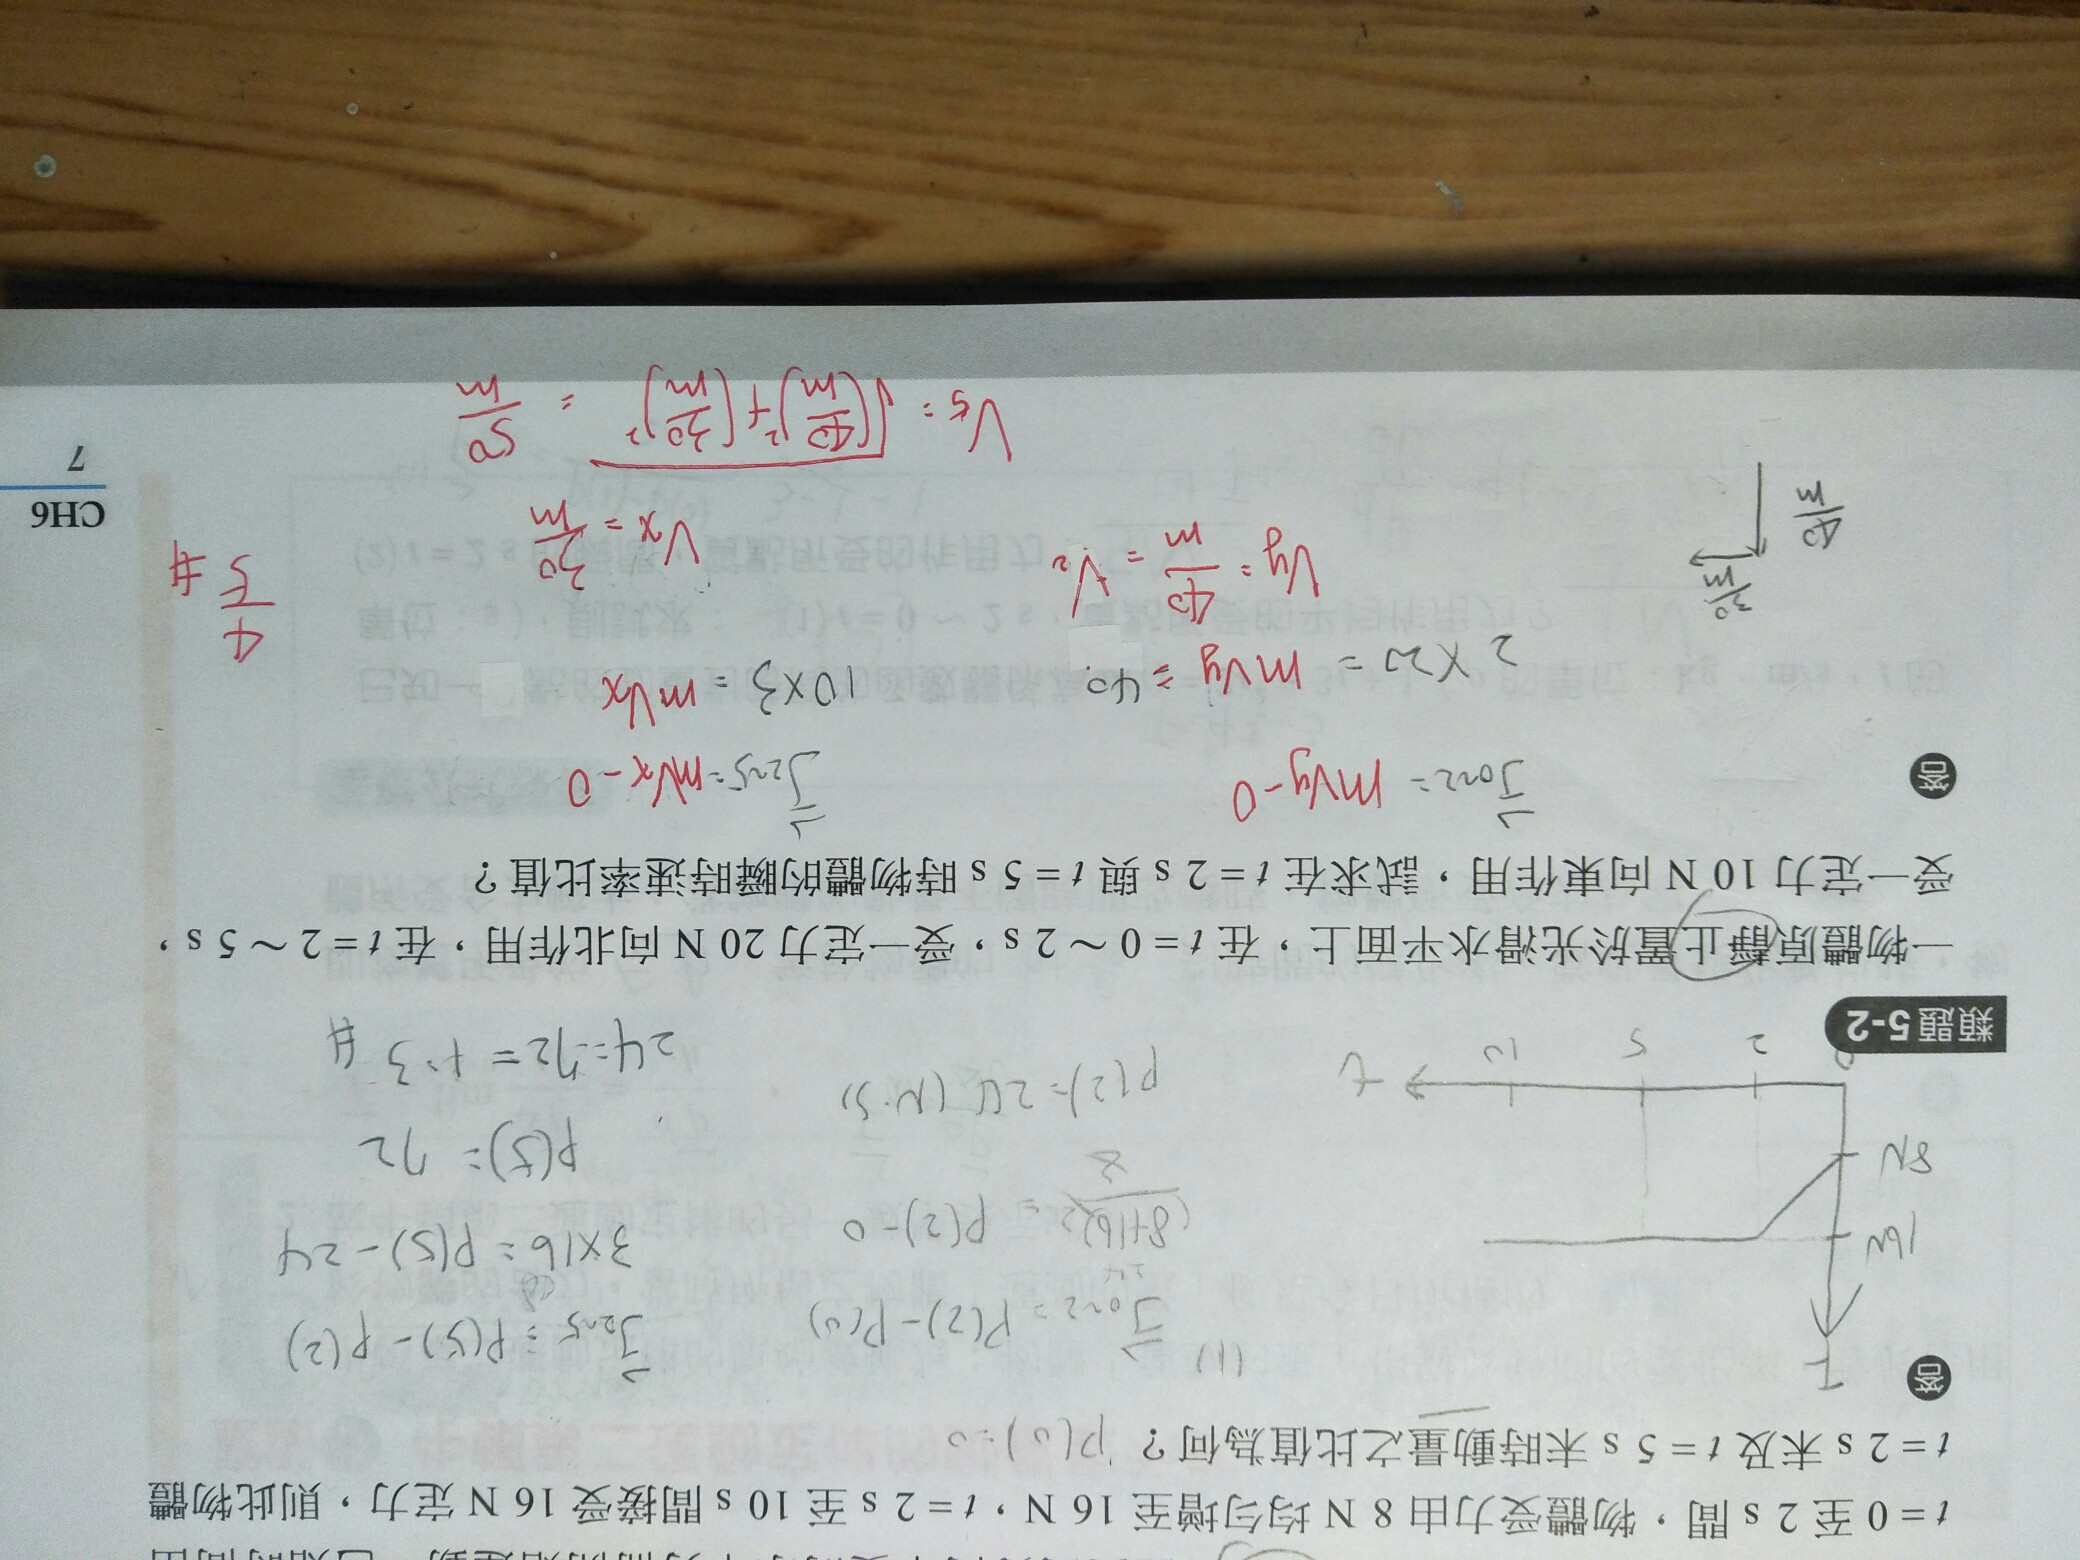 t=0 至 2 s 間，物體受力由 8 N 均勻增至 16 N，t=2 s 至 10 s 間接受 16 N 定力，則此物體
t=2 s 末及 t=5 s 末時動量之比值為何？ P(0)=0
答
F
16N
8N
0 2 5 10 t
(1)
J0~2 = P(2)-P(0)
(8+16)2/2 = P(2)-0
P(2)=24 (N·S)
J2~5 = P(5)-P(2)
3×16 = P(5)-24
48
P(5)=72
24:72 = 1:3 #
類題 5-2
一物體原靜止置於光滑水平面上，在 t=0～2 s，受一定力 20 N 向北作用，在 t=2～5 s，
受一定力 10 N 向東作用，試求在 t=2 s 與 t=5 s 時物體的瞬時速率比值？
答
J0~2 = mVy-0
2×20 = mVy = 40
Vy = 40/m = V2
J2~5 = mVx-0
10×3 = mVx
Vx = 30/m
4/5 #
30/m
40/m
V5 = √((40/m)²+(30/m)²) = 50/m
CH6
7